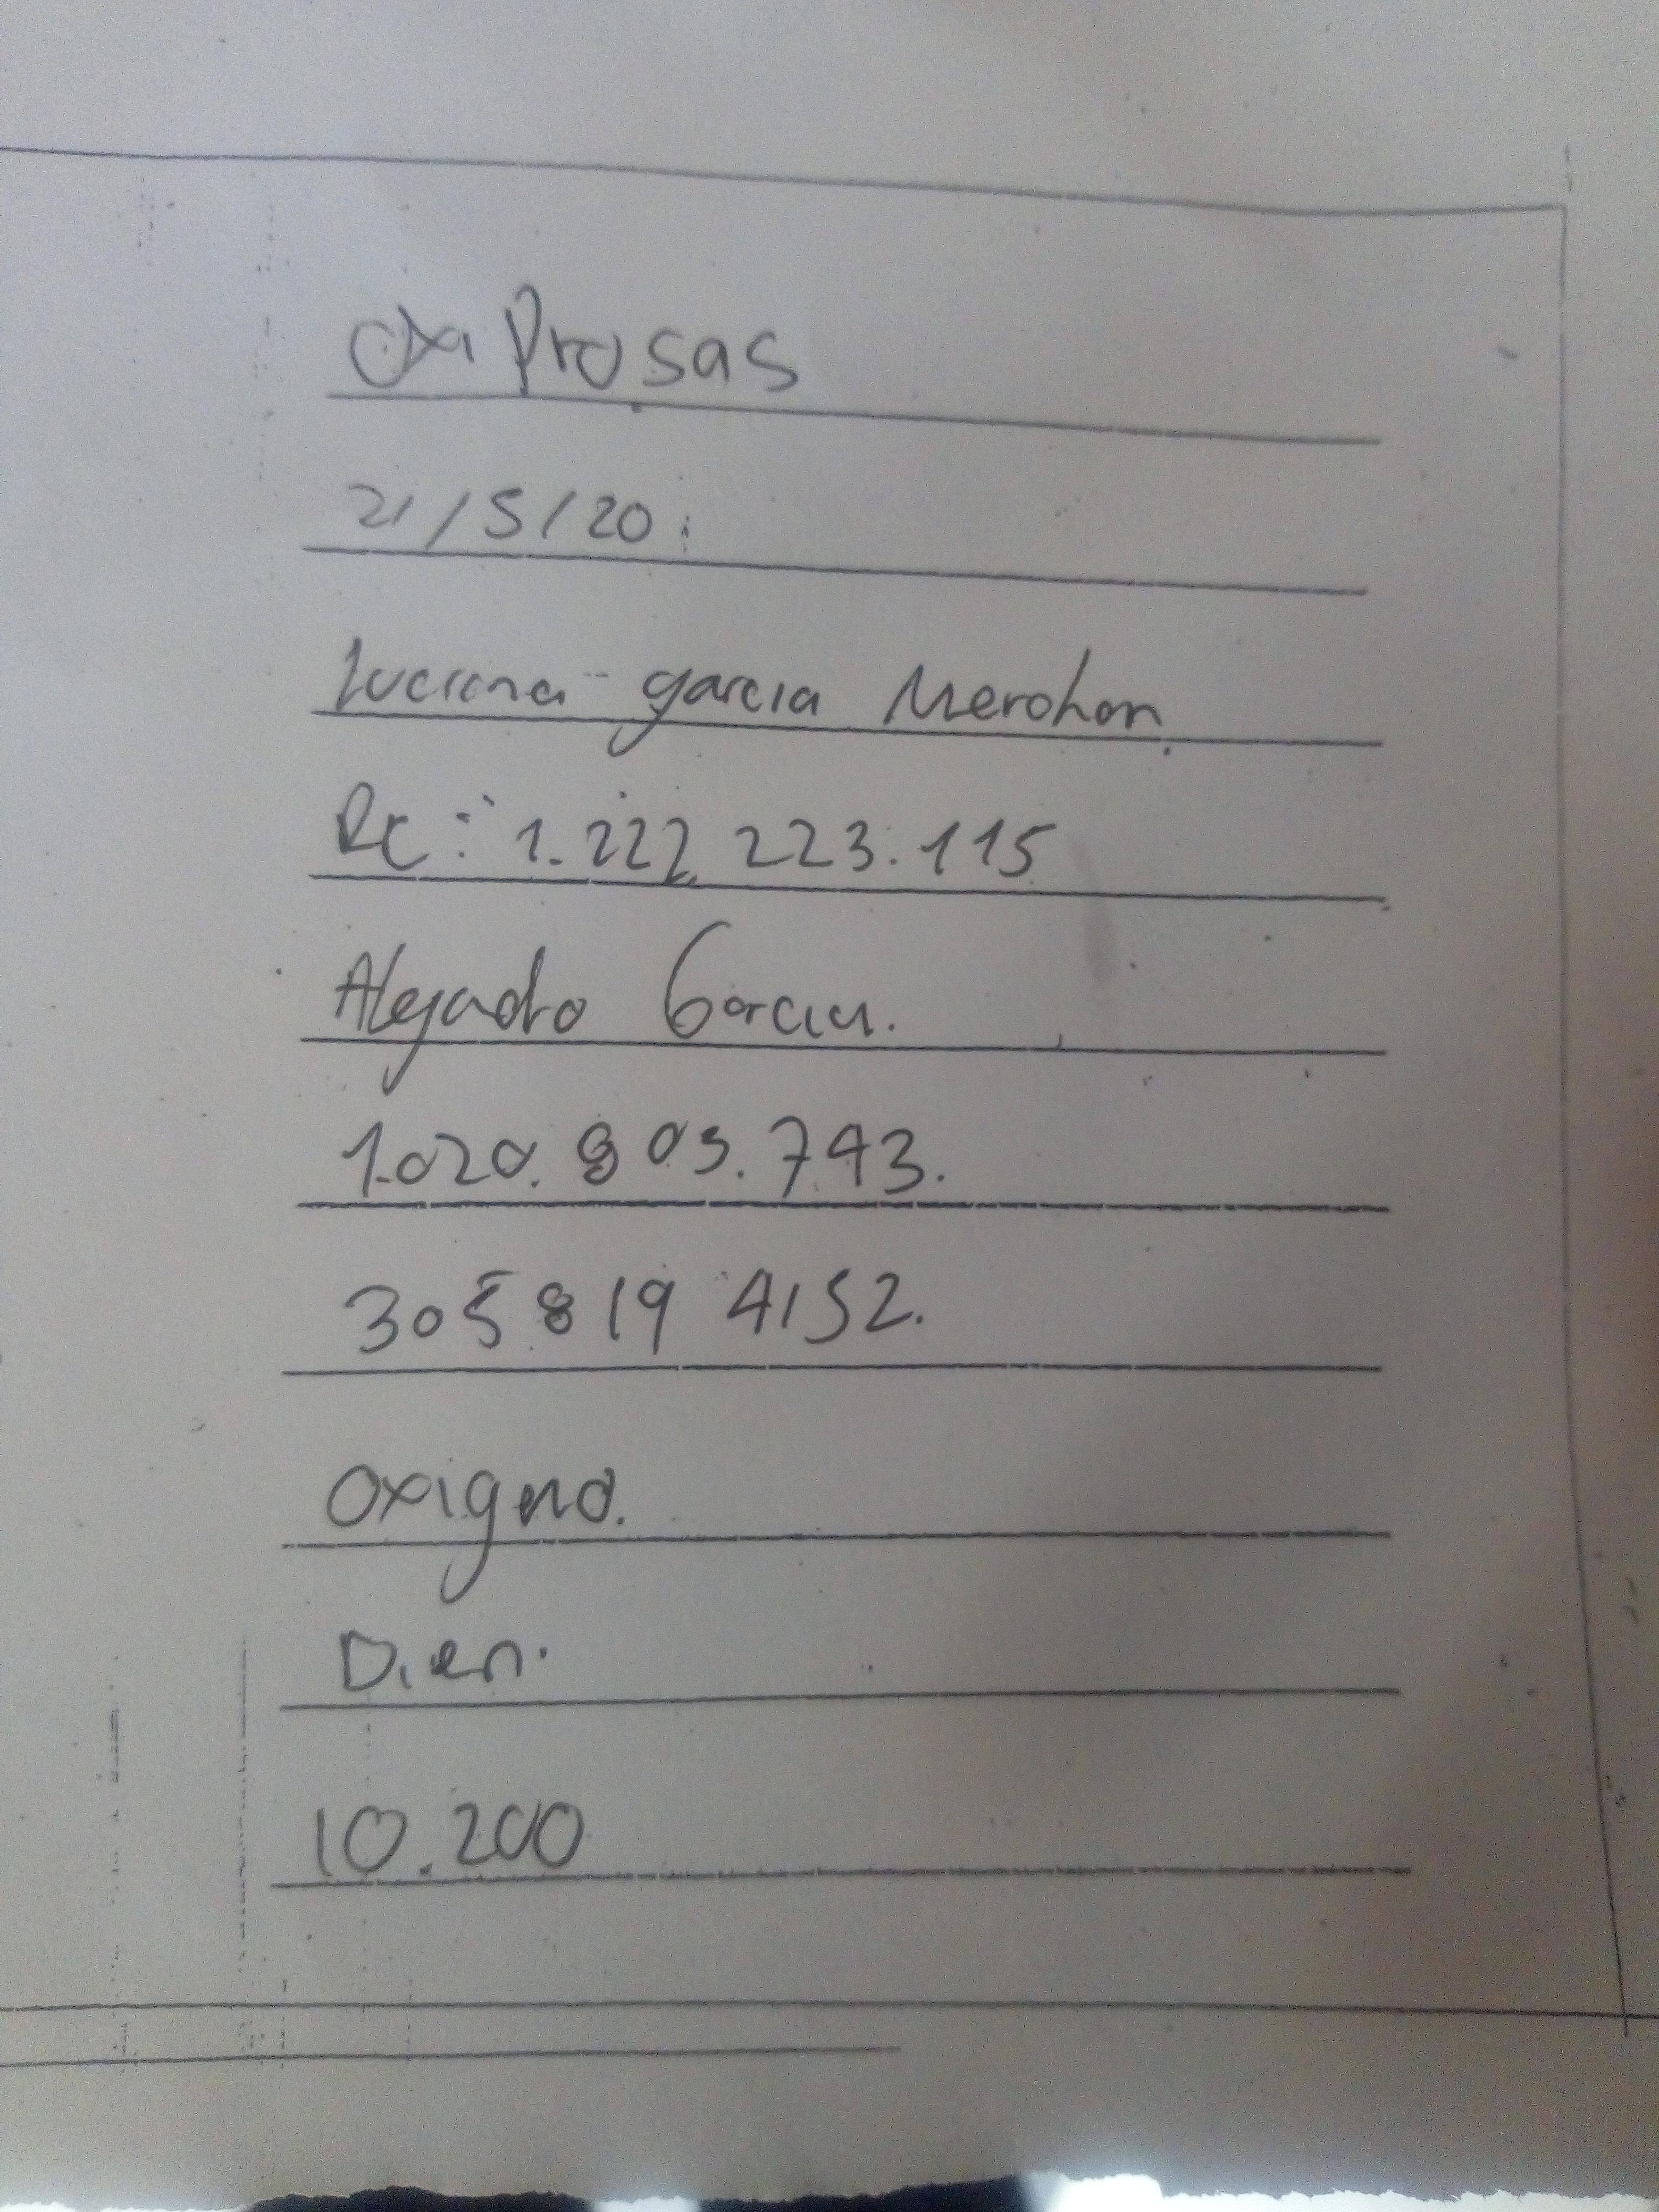 OxiProsas
21/5/20
Luciana garcia Merchan
RC: 1.222.223.115
Alejadro Garcia.
1.020.803.743.
305 819 4152.
Oxigeno.
Dien.
10.200